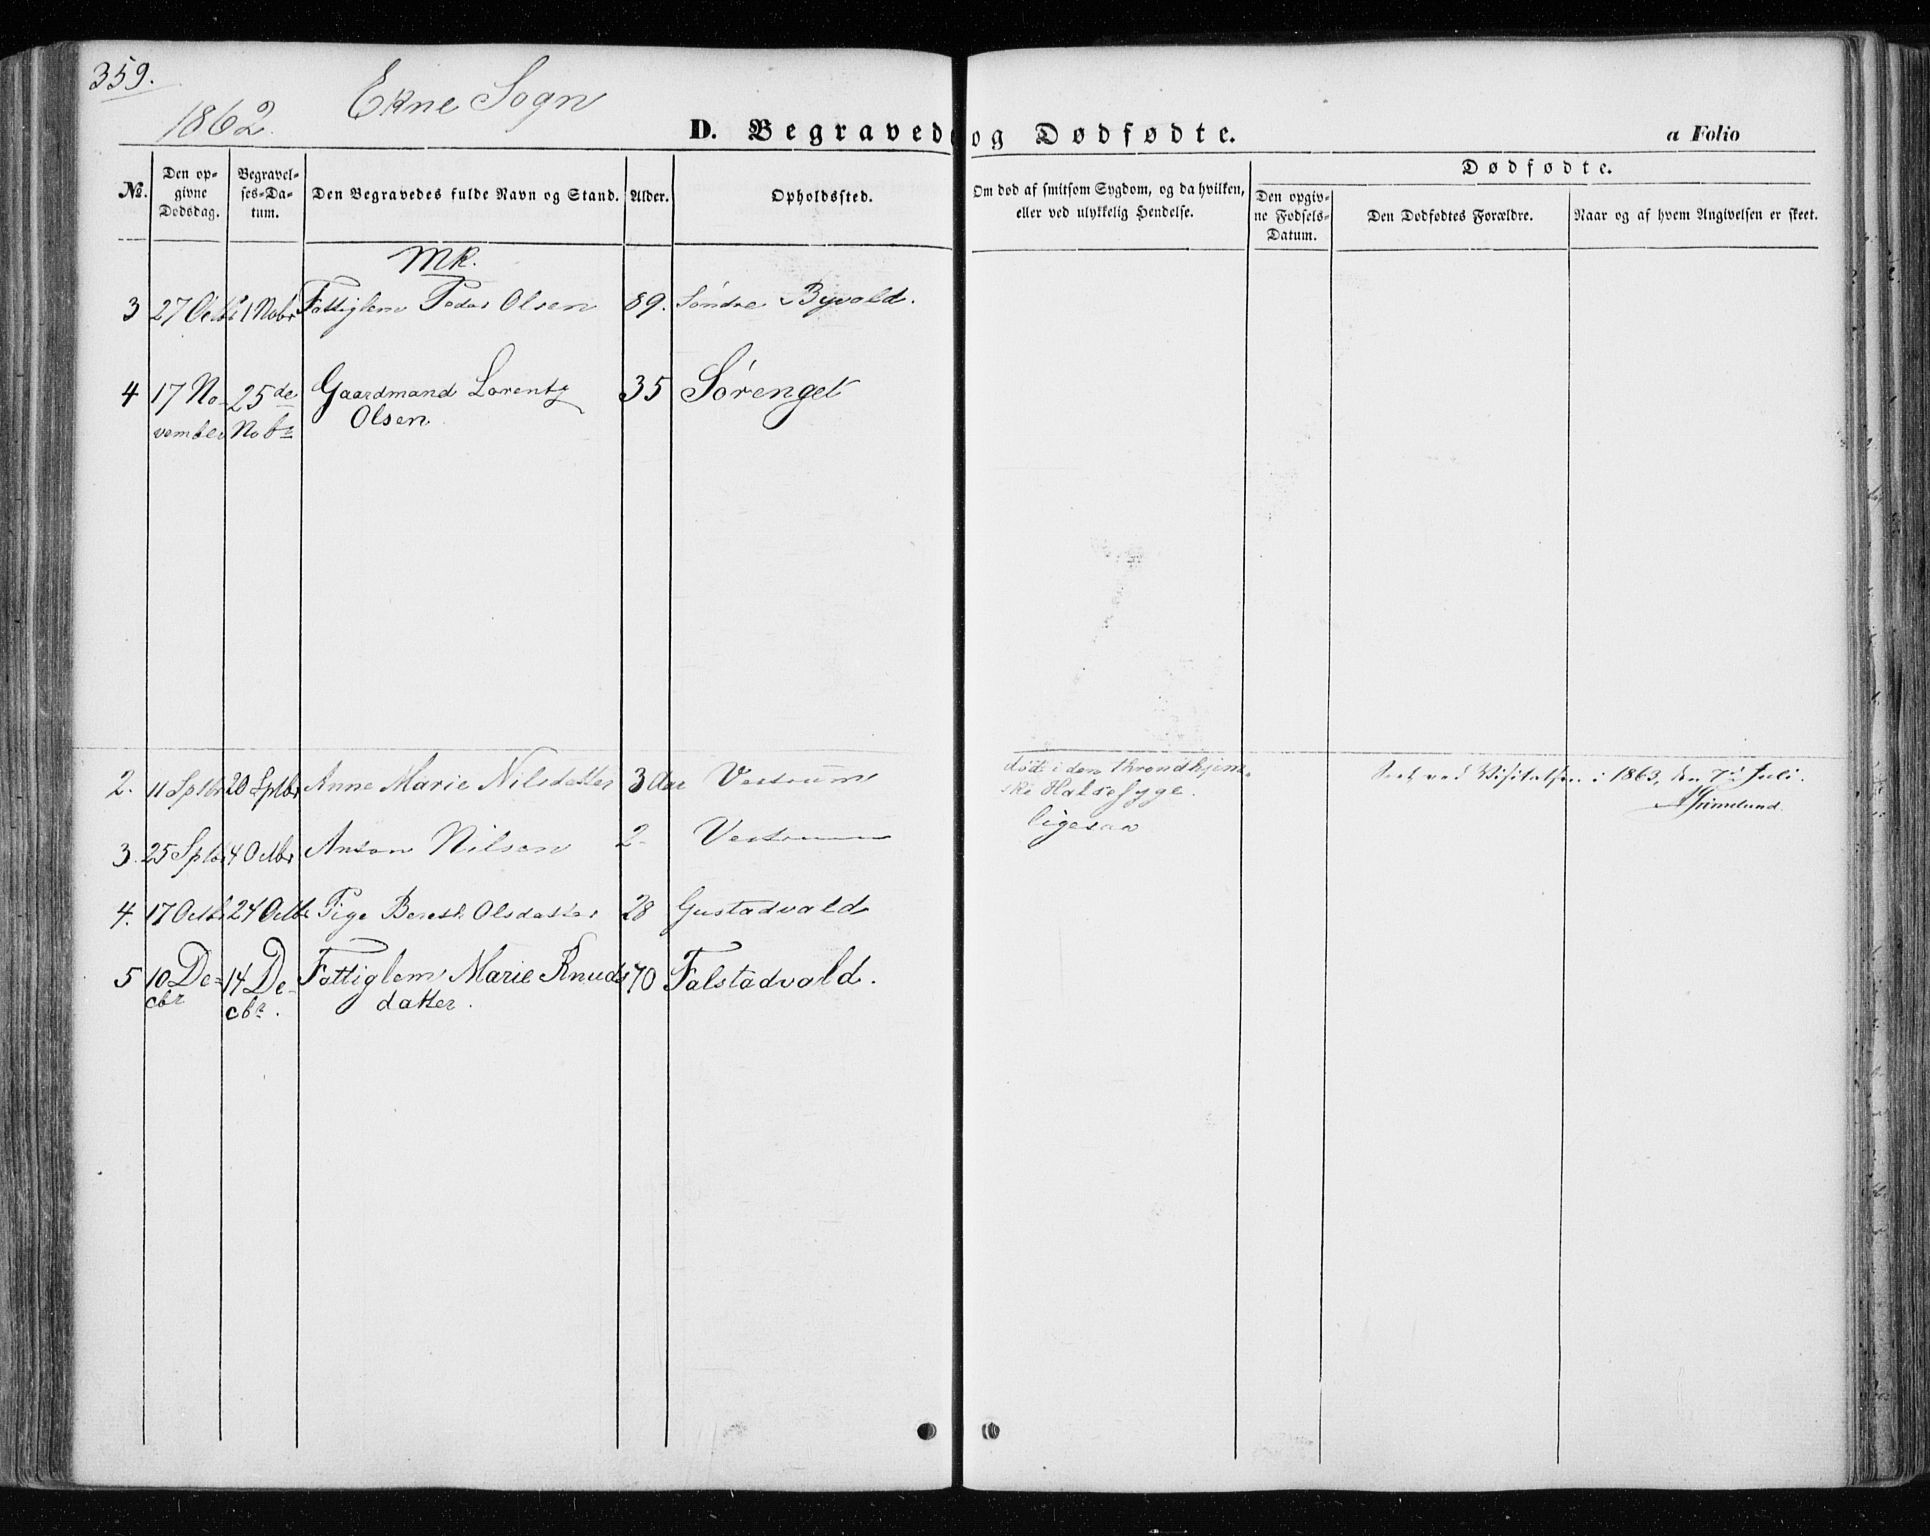 359.
1862. Ekne Sogn
D. Begravede og Dødfødte. a Folio
No. Den opgivne Dødsdag. Begravelses-Datum. Den Begravedes fulde Navn og Stand. Alder. Opholdssted. Om død af smitsom Sygdom, og da hvilken, eller ved ulykkelig Hendelse. Dødfødte. Den opgivne Fødsels-Datum. Den Dødfødtes Forældre. Naar og af hvem Angivelsen er skeet.
Mk.
3 27 Octbr 1 Nobr Fattiglem Peder Olsen 89. Søndre Byvald.
4 17 No- 25de Gaardmand Lorentz 35 Sørenget
vember Nobr Olsen.
2. 11 Sptbr 20 Sptbr Anne Marie Nilsdatter 3 Aar Vestrum død i den throndhjem- Seet ved Visitatsen i 1863, den 7de Juli.
ske Halsesyge. Grimelund.
3. 25 Sptbr 4 Octbr Anton Nilsen 2- Vestrum ligesaa
4. 17 Octbr 24 Octbr Pige Bereth Olsdatter 28 Gustadvald
5 10 De- 14 De- Fattiglem Marie Knuds 70 Falstadvald.
cbr cbr. datter.